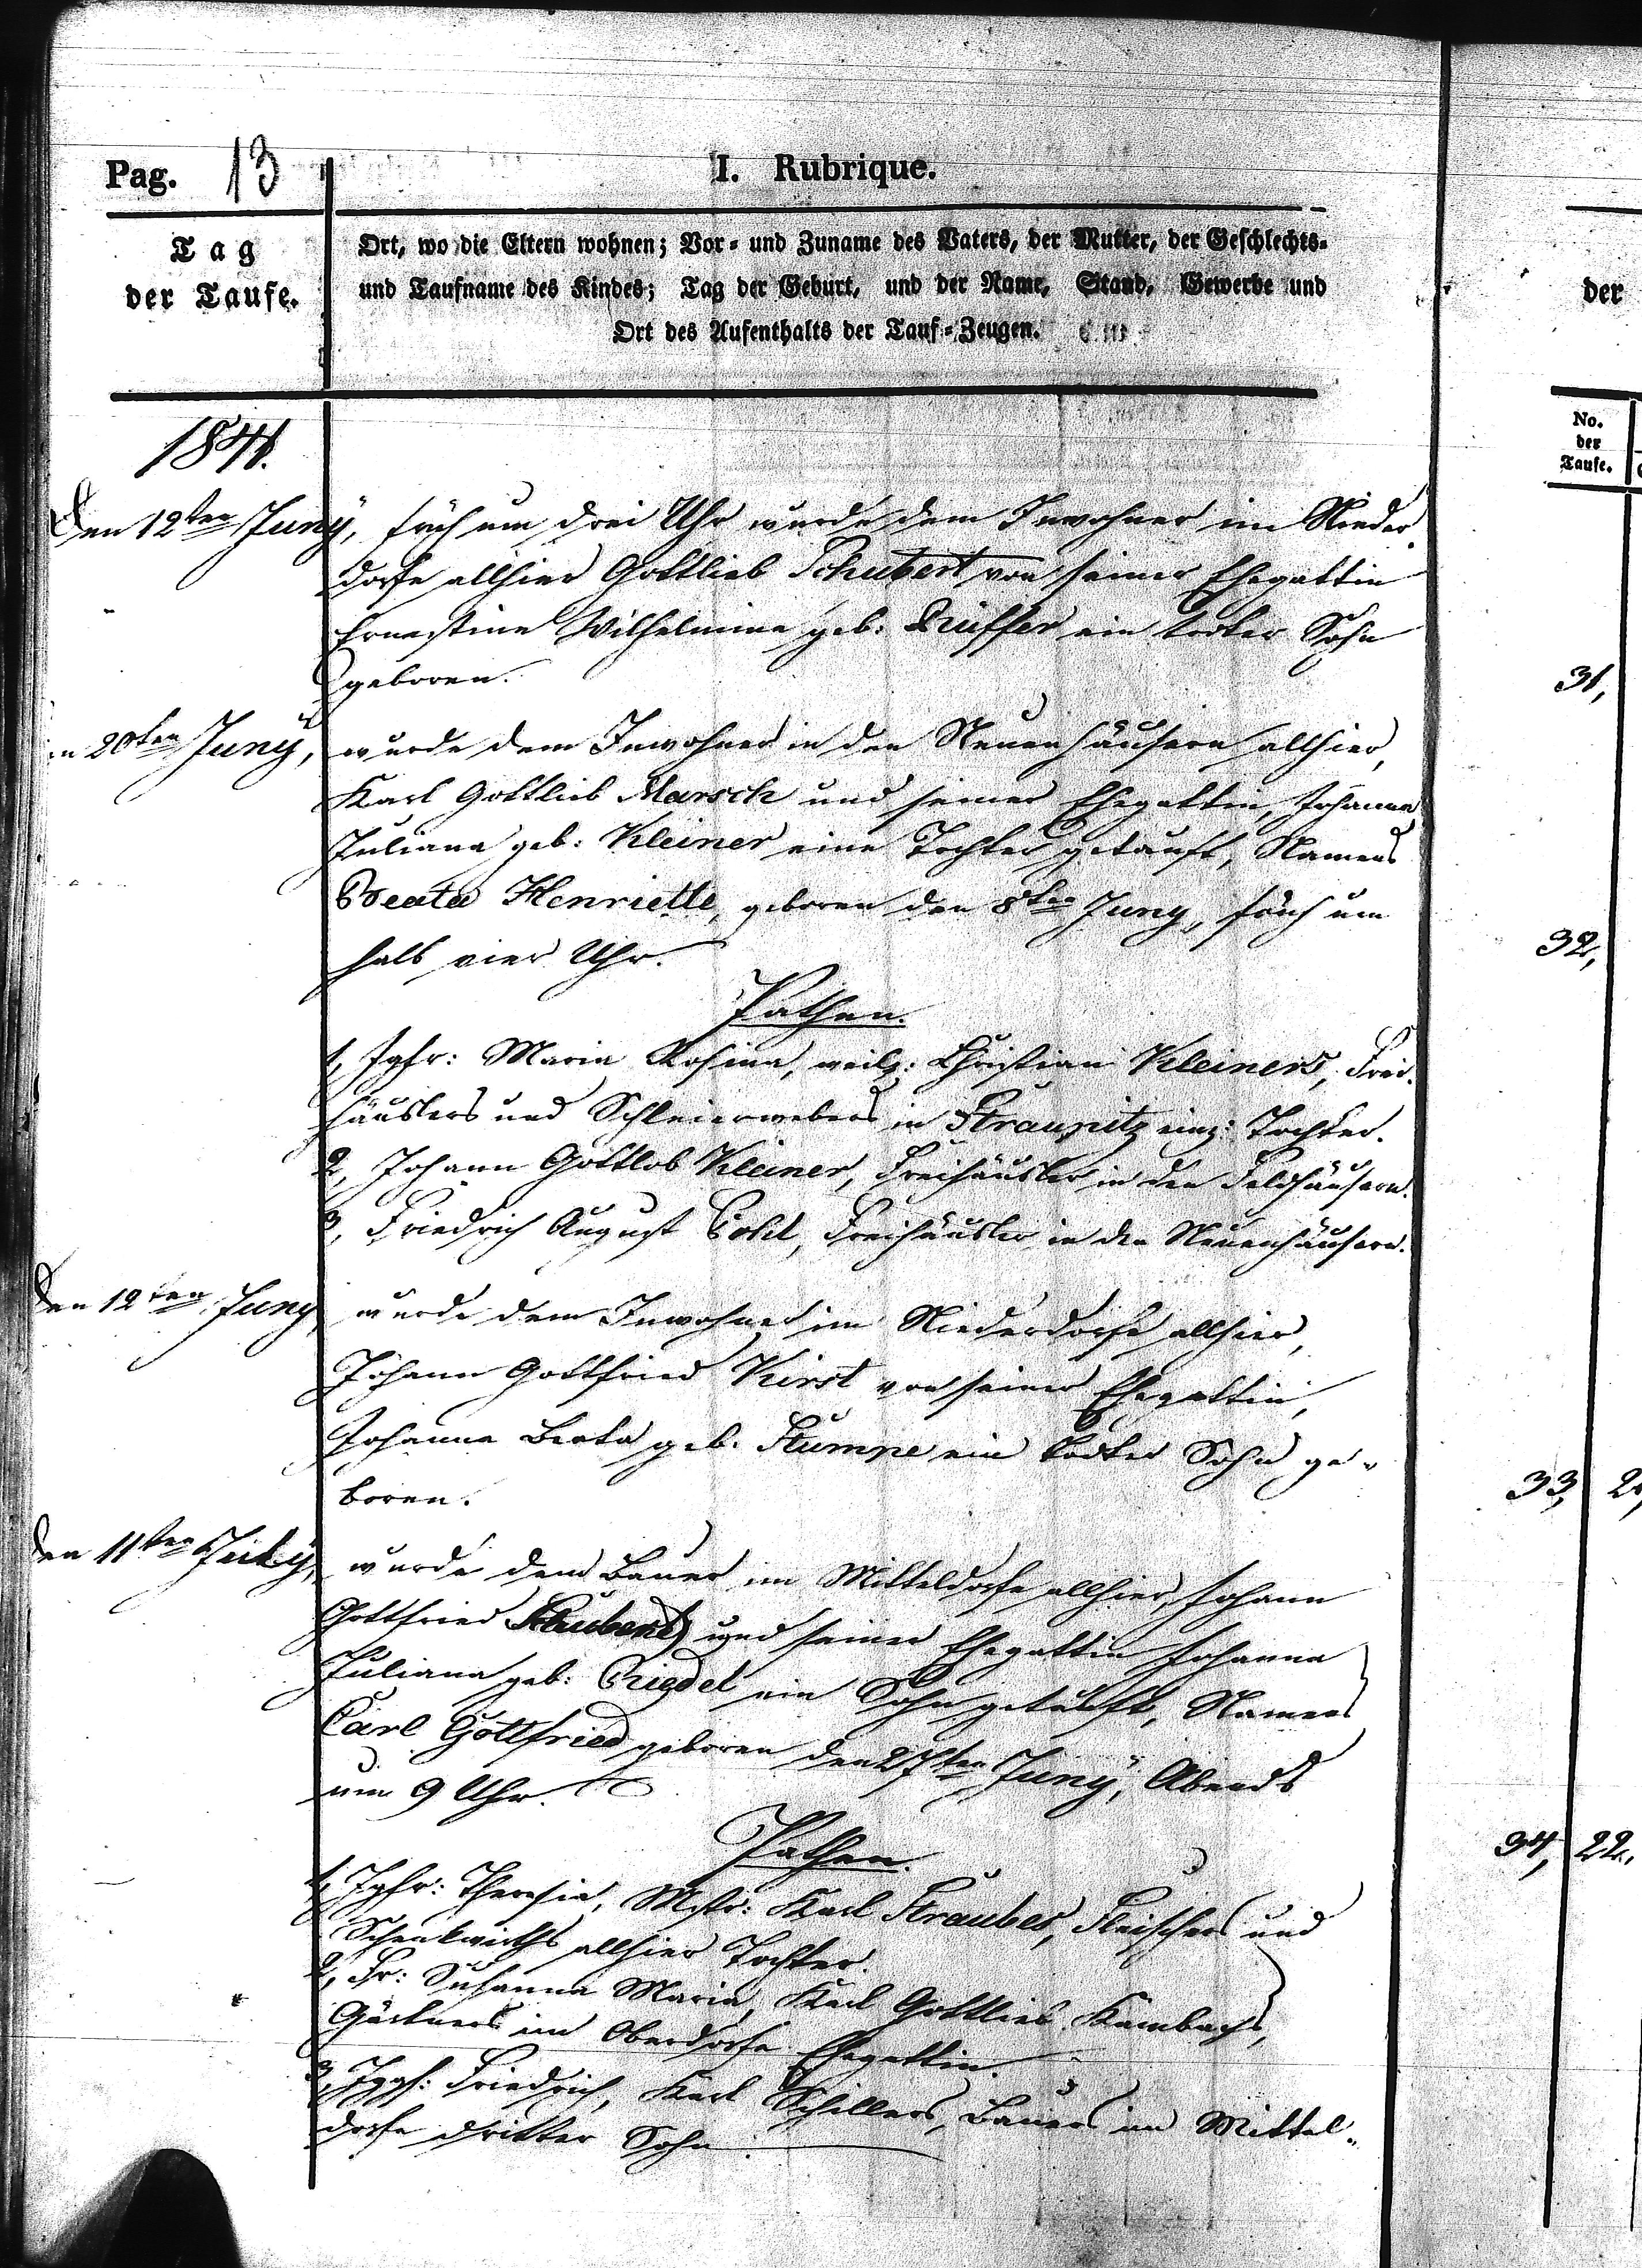 Pag. 13
I. Rubrique.
Tag
der Taufe.
Ort, wo die Eltern wohnen; Vor- und Zuname des Vaters, der Mutter, der Geschlechts-
und Taufname des Kindes; Tag der Geburt, und der Name, Stand, Gewerbe und
Ort des Aufenthalts der Tauf-Zeugen.
der
No.
der
Taufe.
1841.
Den 12ten Juny, früh um drei Uhr wurde dem Inwohner im Nieder-
dorfe allhier Gottlieb Schubert von seiner Ehegattin
Ernestine Wilhelmine geb: Rüffer ein todter Sohn
geboren.
31,
n 20ten Juny, wurde dem Inwohner in den Neuenhäusern allhier,
Karl Gottlieb Marsch und seiner Ehegattin, Johanna
Juliana geb: Kleiner eine Tochter getauft, Namens
Beata Henriette, geboren den 8ten Juny, früh um
halb vier Uhr.
32,
Pathen.
1, Jgfr: Maria Rosina, weil: Christian Kleiners, Frei-
häuslers und Schleierwebers in Straupitz einz: Tochter.
2, Johann Gottlob Kleiner, Freihäusler in den Feldhäusern.
3, Friedrich August Pohl, Freihäusler in den Neuenhäusern.
Den 12ten Juny wurde dem Inwohner im Niederdorfe allhier,
Johann Gottfried Kirst von seiner Ehegattin,
Johanna Beata geb. Stumpe ein todter Sohn ge-
boren.
33,
den 11ten July, wurde dem Bauer im Mitteldorfe allhier, Johann
Gottfried und seiner Ehegattin Johanna
Juliana geb: Riedel ein Sohn getauft, Namens
Carl Gottfried geboren den 27ten Juny, Abends
um 9 Uhr.
34, 22.
Pathen.
1, Jgfr: Theresia, Mstr: Karl Straubes, Fleischers und
Schenkwirths allhier Tochter.
2, Fr: Susanna Maria, Karl Gottlieb Kambachs,
Gärtners im Oberdorfe Ehegattin
3, Jggs: Friedrich, Karl Schillers, Bauers im Mittel-
dorfe dritter Sohn.